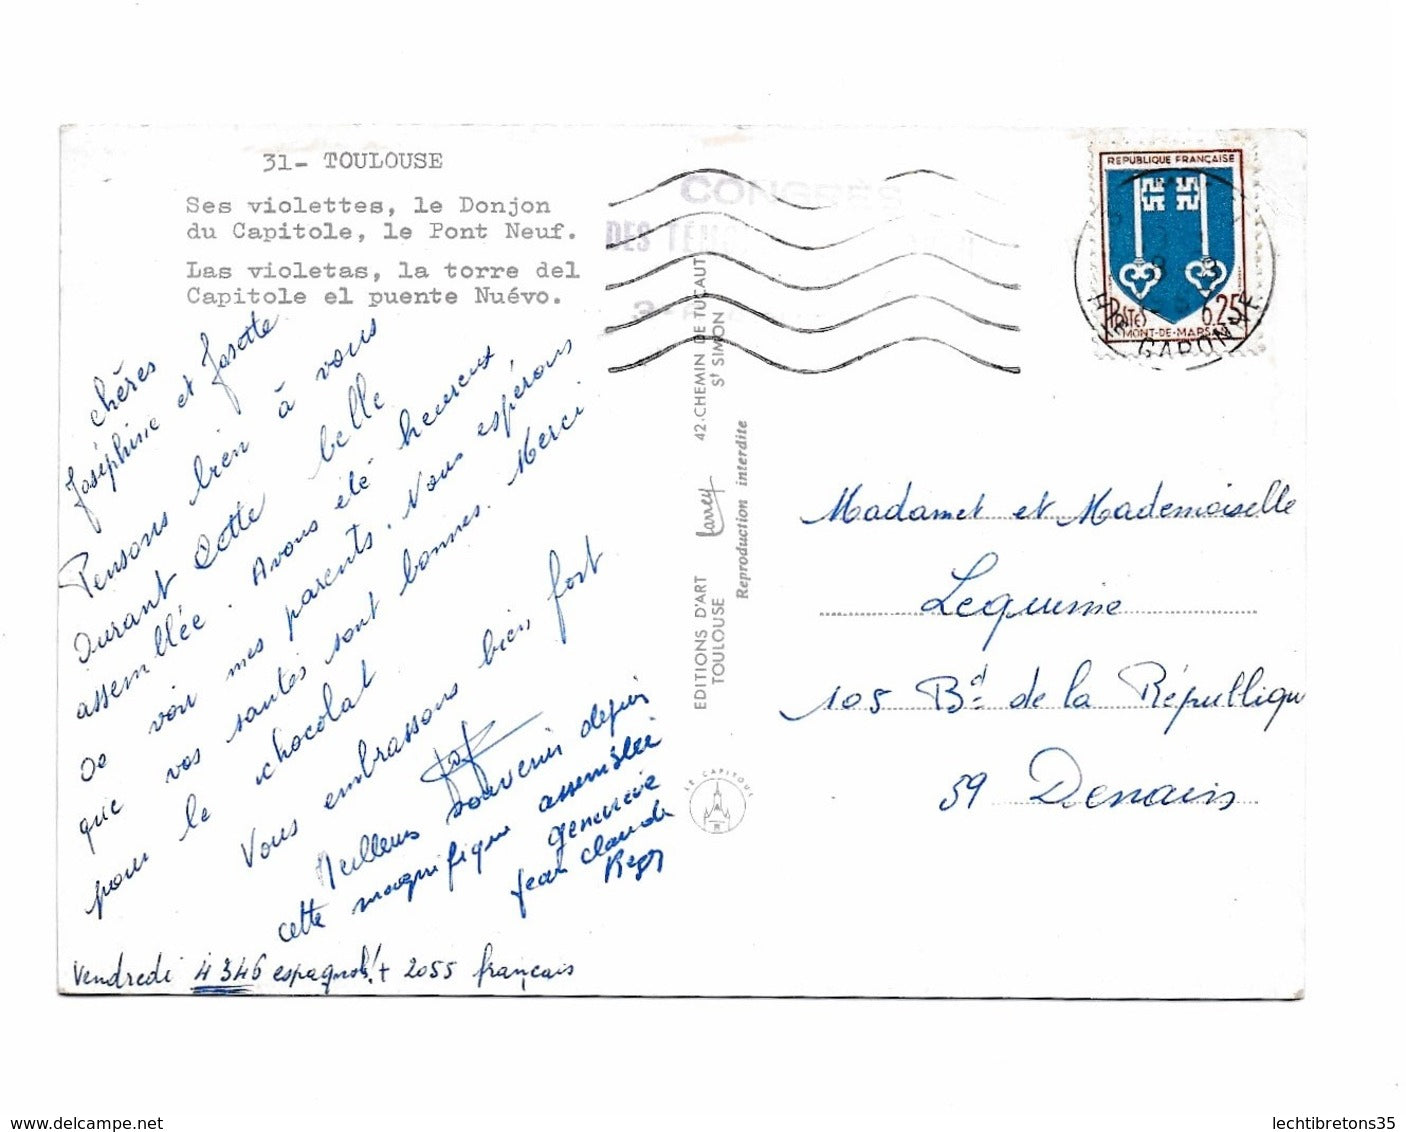 31- TOULOUSE
Ses violettes, le Donjon
du Capitole, le Pont Neuf.
Las violetas, la torre del
Capitole el puente Nuévo.
chères
Joséphine et Josette
Pensons bien à vous
durant cette belle
assemblée. Avons été heureux
de voir mes parents. Nous espérons
que vos santés sont bonnes. Merci
pour le chocolat.
Vous embrassons bien fort
Meilleurs souvenirs depuis
cette magnifique assemblée
geneviève
jean claude
Vendredi 4 346 espagnols! + 2055 français
EDITIONS D'ART Larrey 42.CHEMIN DE TUCAUT
TOULOUSE Reproduction interdite St SIMON
LE CAPITOUL
CONGRÈS
DES
3-
REPUBLIQUE FRANÇAISE
POSTES 0,25
MONT-DE-MARSAN
HTE GARONNE
Madamet et Mademoiselle
Lequime
105 Bd de la République
59 Denain
delcampe.net
lechtibretons35